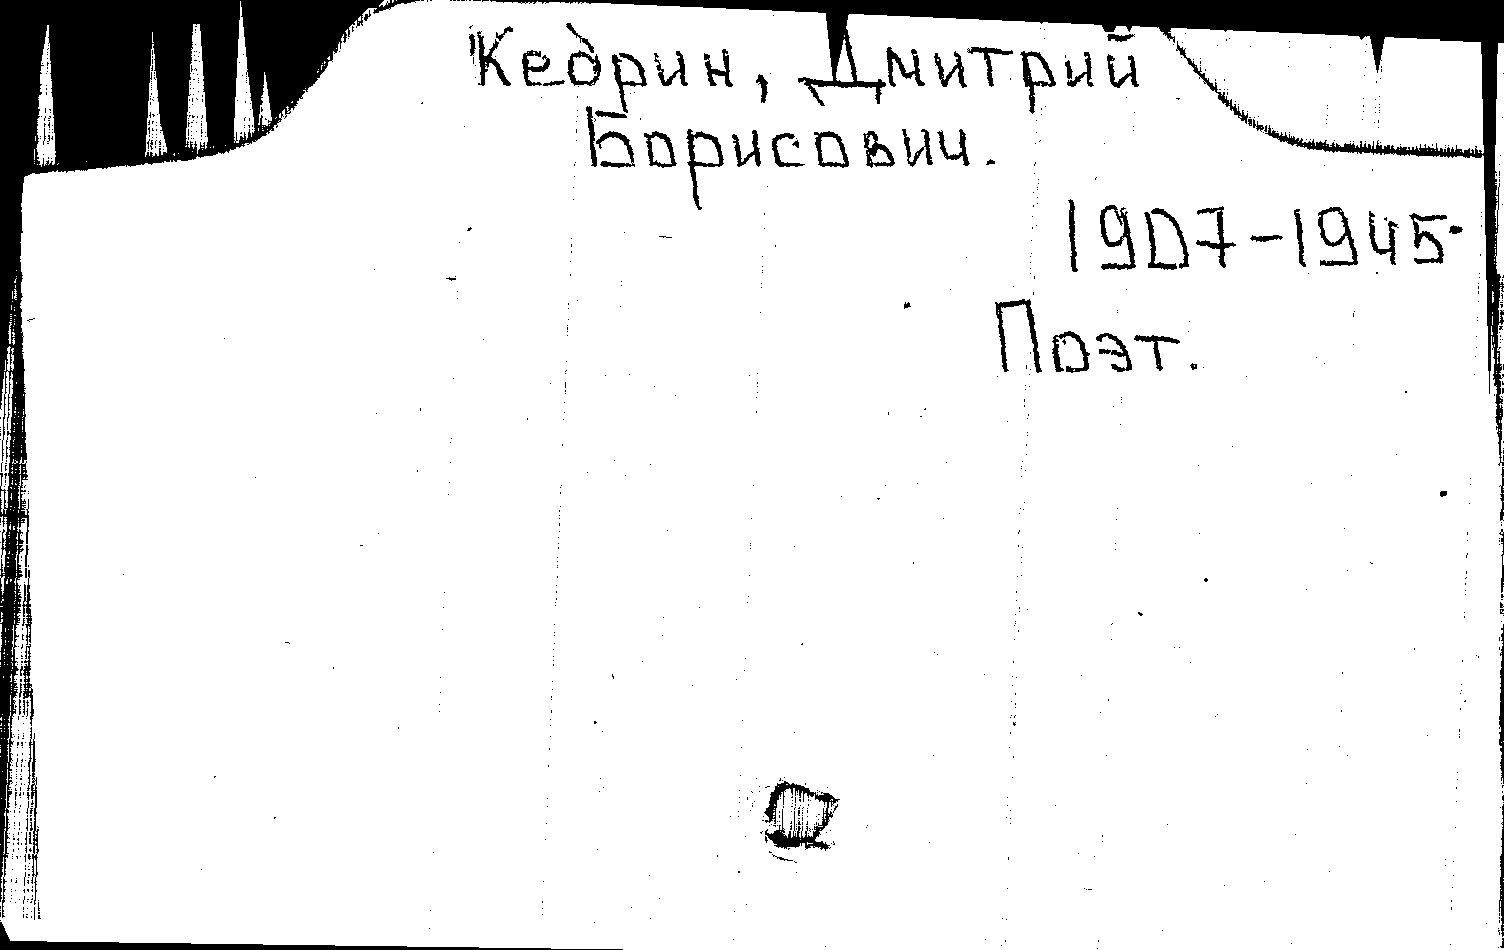 Кедрин, Дмитрий
Борисович.
1907-1945
Поэт.